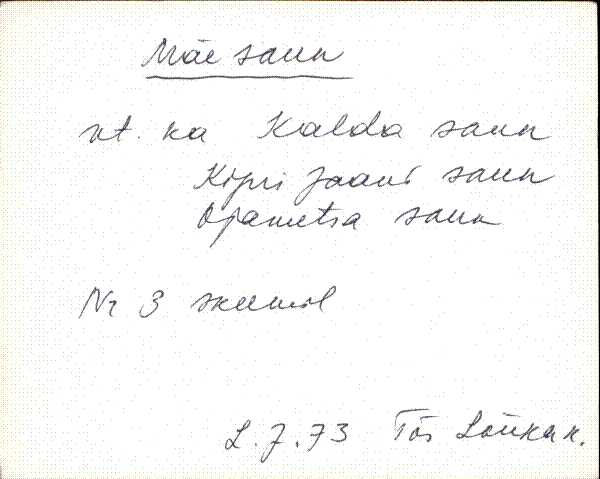 Mäe saun
vt. ka Kalda saun
Kõpri Jaani saun
Ojametsa saun
Nr 3 skeemil
L. J. 73 Tõs